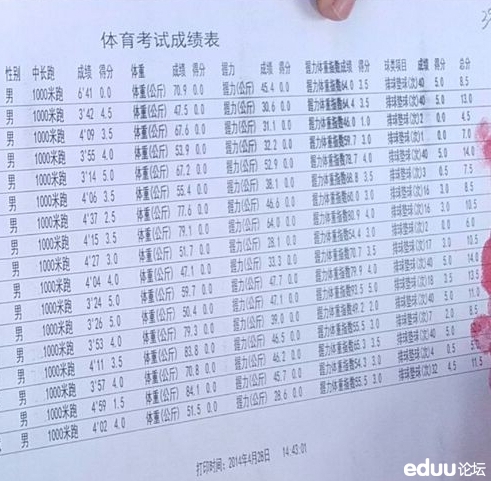 体育考试成绩表
性别 中长跑 成绩 得分 体重 成绩 得分 握力 成绩 得分 握力体重指数成绩 得分 球类项目 成绩 得分 总分
男 1000米跑 6'41 0.0 体重(公斤) 70.9 0.0 握力(公斤) 45.4 0.0 握力体重指数64.0 3.5 排球垫球(次)40 5.0 8.5
男 1000米跑 3'42 4.5 体重(公斤) 47.5 0.0 握力(公斤) 30.6 0.0 握力体重指数64.4 3.5 排球垫球(次)40 5.0 13.0
男 1000米跑 4'09 3.5 体重(公斤) 67.6 0.0 握力(公斤) 31.1 0.0 握力体重指数46.0 1.0 排球垫球(次)2 0.0 4.5
男 1000米跑 3'55 4.0 体重(公斤) 53.9 0.0 握力(公斤) 32.2 0.0 握力体重指数59.7 3.0 排球垫球(次)1 0.0 7.0
男 1000米跑 3'14 5.0 体重(公斤) 67.2 0.0 握力(公斤) 52.9 0.0 握力体重指数78.7 4.0 排球垫球(次)40 5.0 14.0
男 1000米跑 4'06 3.5 体重(公斤) 55.4 0.0 握力(公斤) 38.1 0.0 握力体重指数68.8 3.5 排球垫球(次)3 0.5 7.5
男 1000米跑 4'37 2.5 体重(公斤) 77.6 0.0 握力(公斤) 46.6 0.0 握力体重指数60.0 3.0 排球垫球(次)16 3.0 8.5
男 1000米跑 4'15 3.5 体重(公斤) 79.1 0.0 握力(公斤) 64.0 0.0 握力体重指数80.9 4.0 排球垫球(次)16 3.0 10.5
男 1000米跑 4'27 3.0 体重(公斤) 51.7 0.0 握力(公斤) 28.1 0.0 握力体重指数54.4 3.0 排球垫球(次)2 0.0 6.0
男 1000米跑 4'04 4.0 体重(公斤) 47.1 0.0 握力(公斤) 33.3 0.0 握力体重指数70.7 3.5 排球垫球(次)17 3.0 10.5
男 1000米跑 3'24 5.0 体重(公斤) 59.7 0.0 握力(公斤) 47.7 0.0 握力体重指数79.9 4.0 排球垫球(次)40 5.0 14.0
男 1000米跑 3'26 5.0 体重(公斤) 50.4 0.0 握力(公斤) 47.1 0.0 握力体重指数93.5 5.0 排球垫球(次)18 3.5 13.5
男 1000米跑 3'53 4.0 体重(公斤) 79.3 0.0 握力(公斤) 39.0 0.0 握力体重指数49.2 2.0 排球垫球(次)40 5.0 11.0
男 1000米跑 4'11 3.5 体重(公斤) 83.8 0.0 握力(公斤) 46.5 0.0 握力体重指数55.5 3.0 排球垫球(次)7 2.0 8.5
男 1000米跑 3'57 4.0 体重(公斤) 70.8 0.0 握力(公斤) 46.2 0.0 握力体重指数65.3 3.5 排球垫球(次)40 5.0
男 1000米跑 4'59 1.5 体重(公斤) 84.1 0.0 握力(公斤) 45.7 0.0 握力体重指数54.3 3.0 排球垫球(次)4 0.5
男 1000米跑 4'02 4.0 体重(公斤) 51.5 0.0 握力(公斤) 28.6 0.0 握力体重指数55.5 3.0 排球垫球(次)32 4.5 11.5
打印时间：2014年4月28日 14:43:01
eduu论坛